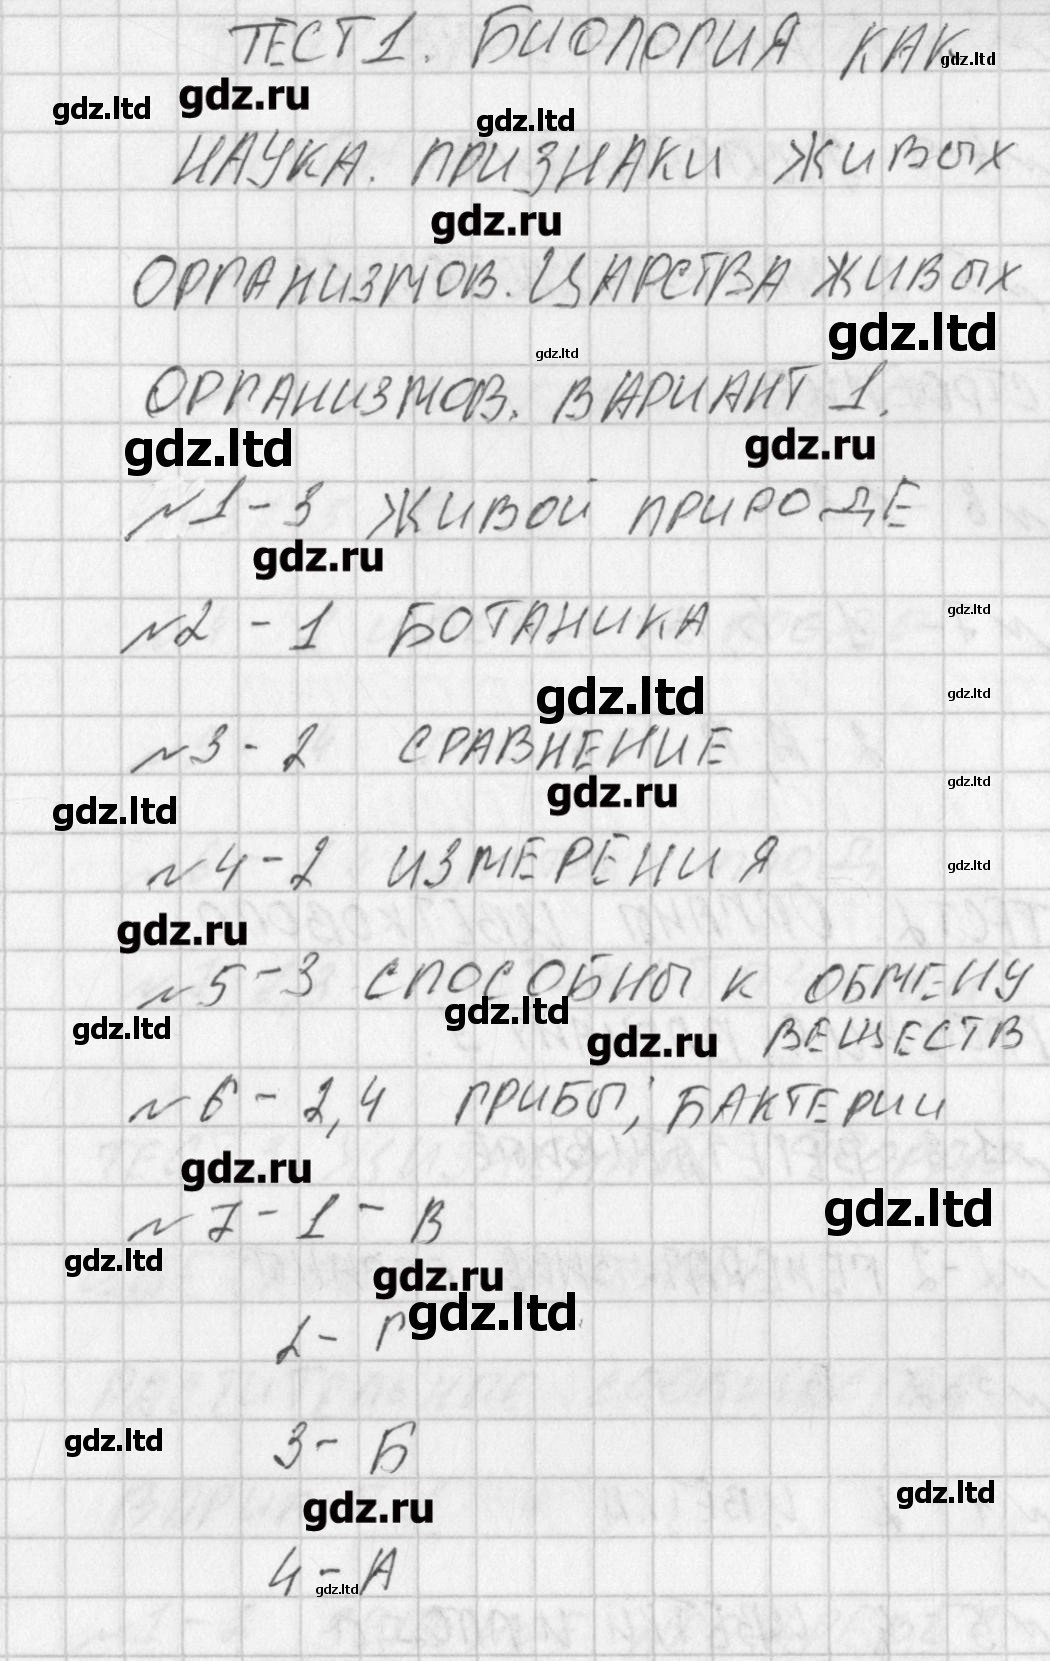 ТЕСТ 1. БИОЛОГИЯ КАК
gdz.ltd
gdz.ltd gdz.ru gdz.ltd
НАУКА. ПРИЗНАКИ ЖИВЫХ
gdz.ru
ОРГАНИЗМОВ. ЦАРСТВА ЖИВЫХ
gdz.ltd
gdz.ltd
ОРГАНИЗМОВ. ВАРИАНТ 1.
gdz.ltd gdz.ru
№1-3 ЖИВОЙ ПРИРОДЕ
gdz.ru
№2 - 1 БОТАНИКА
gdz.ltd
gdz.ltd gdz.ltd
№3 - 2 СРАВНЕНИЕ
gdz.ru gdz.ltd
gdz.ltd
№4-2 ИЗМЕРЕНИЯ
gdz.ltd
gdz.ru
№5-3 СПОСОБНЫ К ОБМЕНУ
gdz.ltd
gdz.ltd gdz.ru ВЕЩЕСТВ
№6-2,4 ГРИБЫ, БАКТЕРИИ
gdz.ru
№7-1-В
gdz.ltd
gdz.ltd gdz.ru
2-Г
gdz.ltd
3-Б
gdz.ltd
gdz.ru gdz.ltd
4-А
gdz.ltd